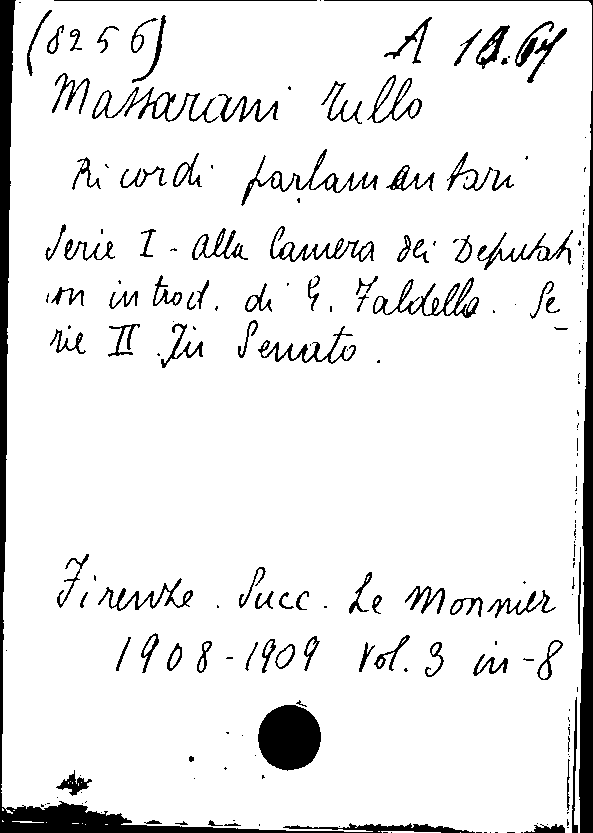 (8256) A 13.64
Massarani Tullo
Ricordi parlamentari
Serie I - alla Camera dei Deputati
con introd. di G. Faldella. Se-
rie II In Senato.
Firenze. Succ. Le Monnier
1908-1909 Vol. 3 in-8